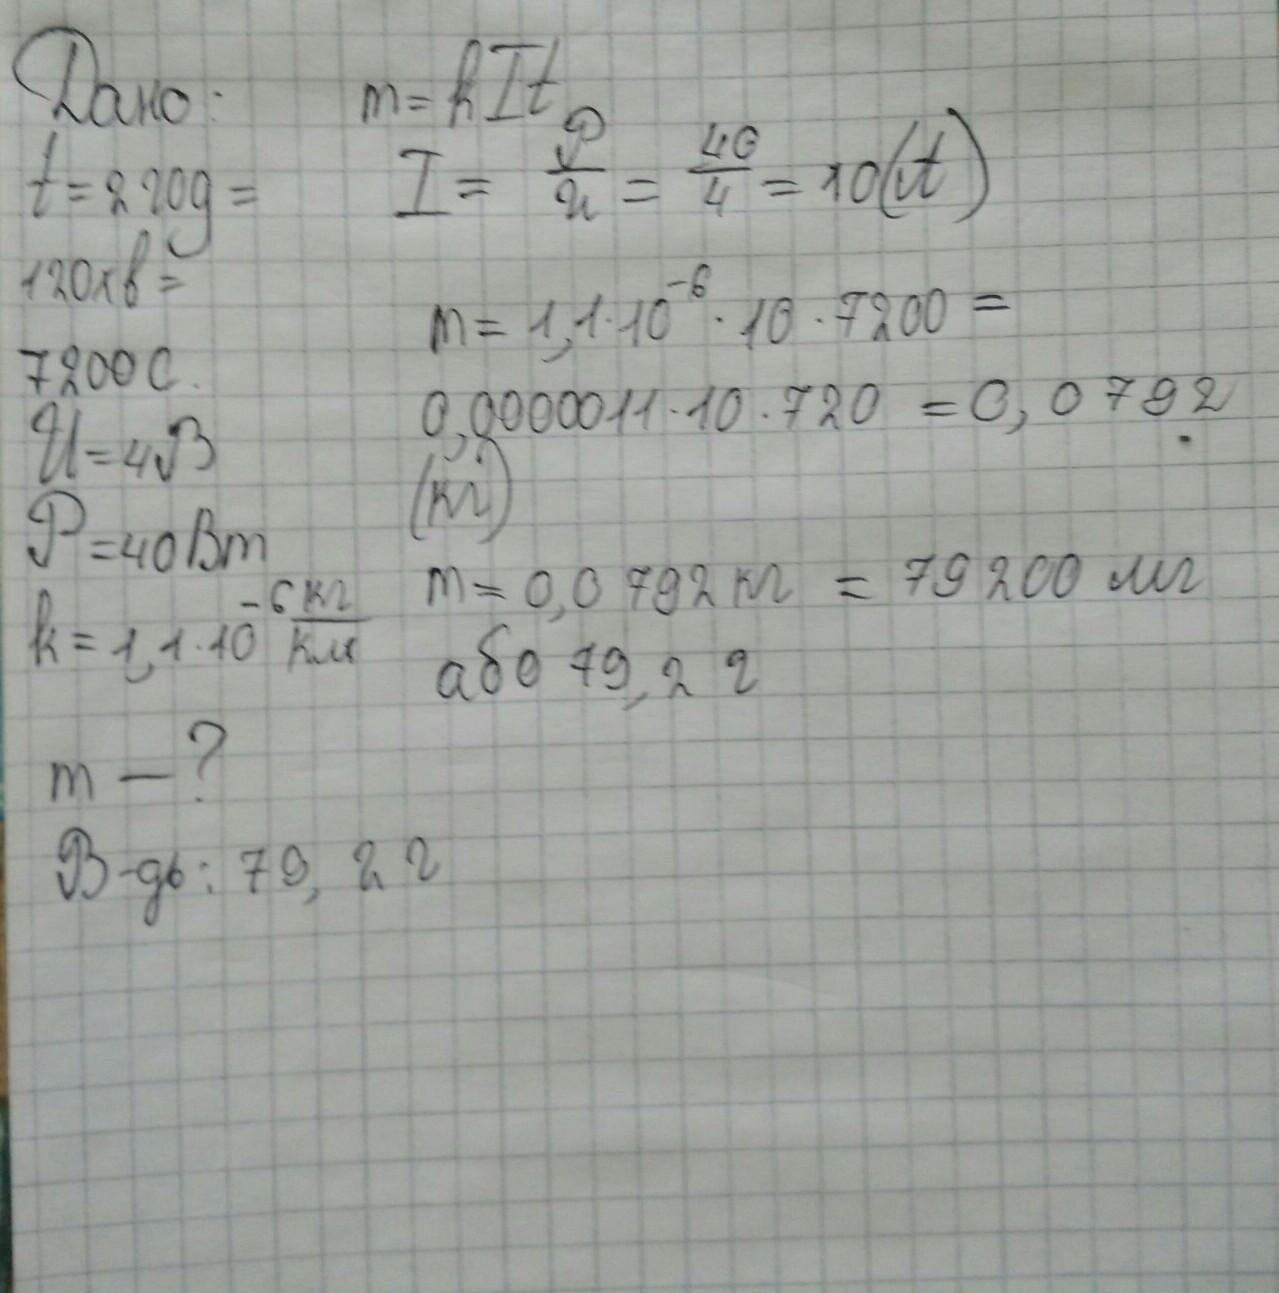 Дано:
t = 2 20g =
120хв =
7200 С.
U = 4В
P = 40Вт
k = 1,1·10⁻⁶ кг/Кл
m — ?
m = kIt
I = P/U = 40/4 = 10(A)
m = 1,1·10⁻⁶·10·7200 =
0,0000011·10·720 = 0,0792
(кг)
m = 0,0792 кг = 79200 мг
або 79,2 г
В-дь: 79, 2 г